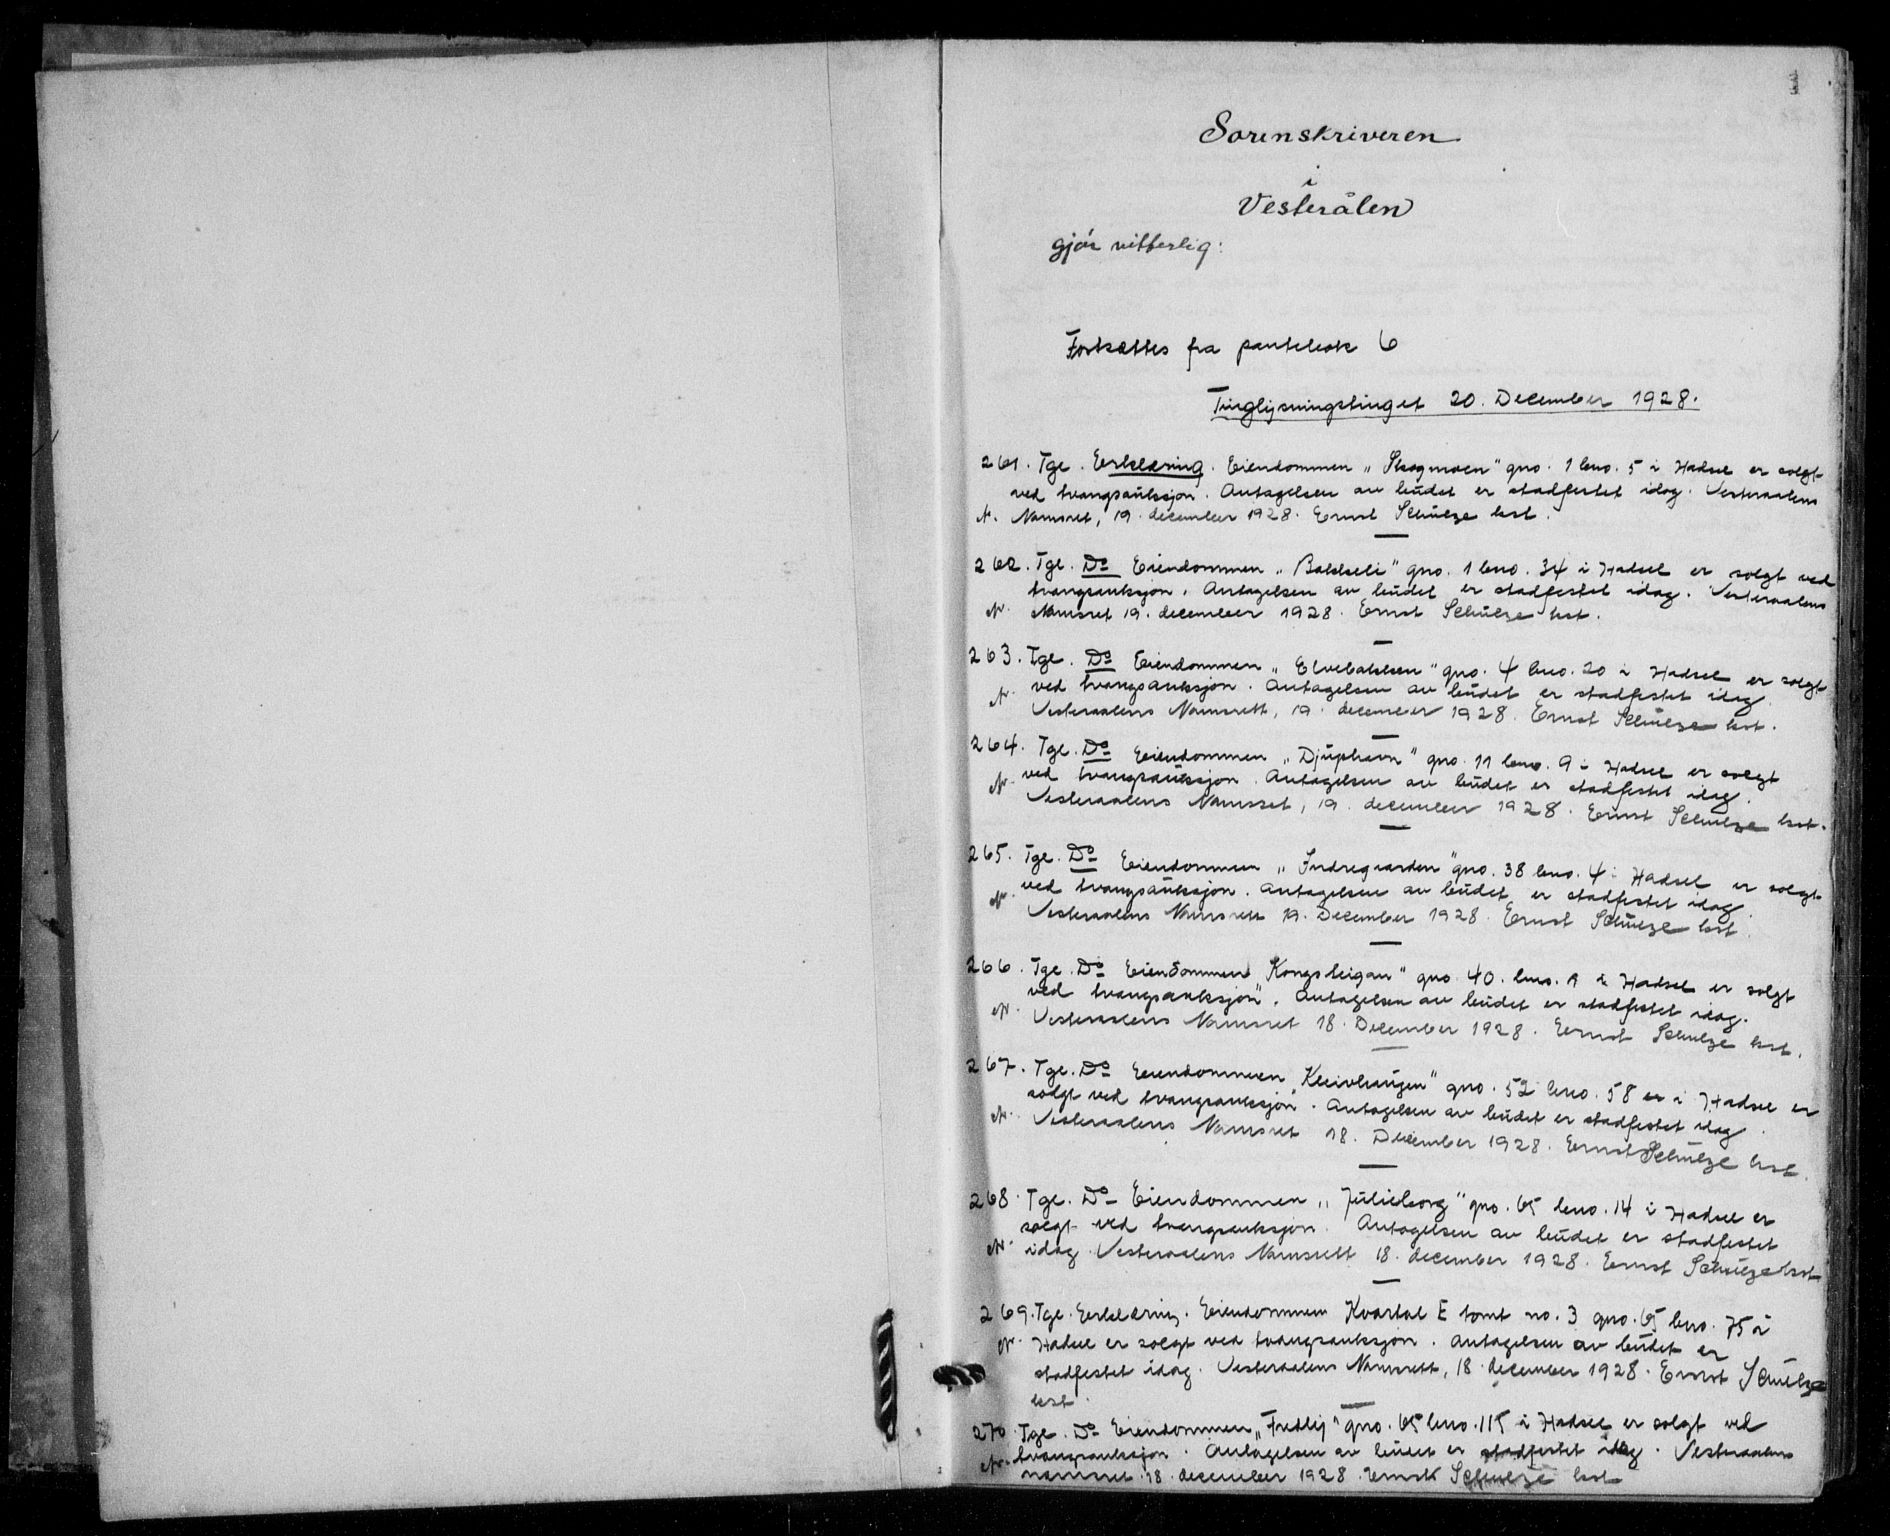 1
Sorenskriveren
i
Vesterålen
gjör vitterlig:
Fortsættes fra pantebok 6
Tinglysningstinget 20. December 1928.
261. Tgl. Erklæring. Eiendommen „Skogmoen" gno. 1 bno. 5 i Hadsel er solgt
ved tvangsauksjon. Antagelsen av budet er stadfestet idag. Vesteraalens
N. Namsret, 19. december 1928. Ernst Schulze kst.
262. Tgl. Do Eiendommen „Bakkeli" gno. 1 bno. 34 i Hadsel er solgt ved
tvangsauksjon. Antagelsen av budet er stadfestet idag. Vesteraalens
N. Namsret 19. december 1928. Ernst Schulze kst.
263. Tgl. Do Eiendommen „Elvebakken" gno. 4 bno. 20 i Hadsel er solgt
N. ved tvangsauksjon. Antagelsen av budet er stadfestet idag.
Vesteraalens Namsrett, 19. december 1928. Ernst Schulze kst.
264. Tgl. Do Eiendommen „Djuphavn" gno. 11 bno. 9 i Hadsel er solgt
N. ved tvangsauksjon. Antagelsen av budet er stadfestet idag.
Vesteraalens Namsret, 19. december 1928. Ernst Schulze kst.
265. Tgl. Do Eiendommen „Indregaarden" gno. 38 bno. 4 i Hadsel er solgt
N. ved tvangsauksjon. Antagelsen av budet er stadfestet idag.
Vesteraalens Namsrett 19. December 1928. Ernst Schulze kst.
266. Tgl. Do Eiendommen Kongsteigan" gno. 40. bno. 9 i Hadsel er solgt
ved tvangsauksjon". Antagelsen av budet er stadfestet idag.
N. Vesteraalens Namsret 18. December 1928. Ernst Schulze kst.
267. Tgl. Do Eiendommen „Kleivhaugen" gno. 52 bno. 58 er i Hadsel er
solgt ved tvangsauksjon. Antagelsen av budet er stadfestet idag.
N. Vesteraalens Namsret 18. December 1928. Ernst Schulze kst.
268. Tgl. Do Eiendommen „Julieborg" gno. 65 bno. 14 i Hadsel er
solgt ved tvangsauksjon. Antagelsen av budet er stadfestet
N. idag. Vesteraalens Namsrett 18. december 1928. Ernst Schulze kst
269. Tgl. Erklæring. Eiendommen Kvartal E tomt no. 3 gno. 65 bno. 75 i
N. Hadsel er solgt ved tvangsauksjon. Antagelsen av budet er
stadfestet idag. Vesteraalens Namsrett, 18. december 1928. Ernst Schulze
kst.
270. Tgl. Do Eiendommen „Fredly" gno. 65 bno. 115 i Hadsel er solgt ved
tvangsauksjon. Antagelsen av budet er stadfestet idag. Vesteraalens
N. namsret 18. december 1928. Ernst Schulze kst